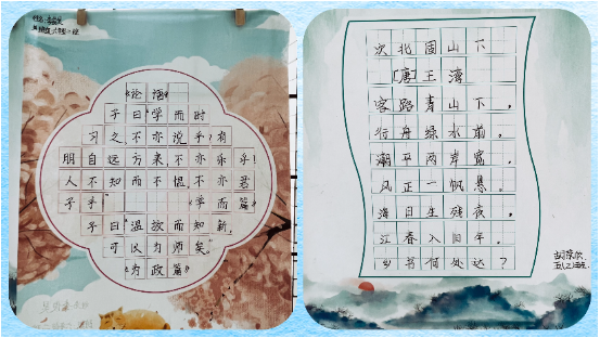 《论语》
子曰：“学而时
习之，不亦说乎？有
朋自远方来，不亦乐乎！
人不知而不愠，不亦君
子乎？”《学而篇》
子曰：“温故而知新，
可以为师矣。”
《为政篇》
次北固山下
[唐]王湾
客路青山下，
行舟绿水前。
潮平两岸阔，
风正一帆悬。
海日生残夜，
江春入旧年。
乡书何处达？